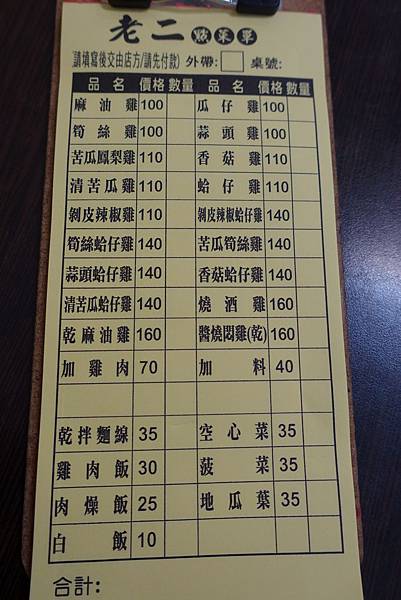 老二點菜單
(請填寫後交由店方/請先付款) 外帶: 桌號:
品名 價格 數量 品名 價格 數量
麻油雞 100 瓜仔雞 100
筍絲雞 100 蒜頭雞 100
苦瓜鳳梨雞 110 香菇雞 110
清苦瓜雞 110 蛤仔雞 110
剝皮辣椒雞 110 剝皮辣椒蛤仔雞 140
筍絲蛤仔雞 140 苦瓜筍絲雞 140
蒜頭蛤仔雞 140 香菇蛤仔雞 140
清苦瓜蛤仔雞 140 燒酒雞 160
乾麻油雞 160 醬燒悶雞(乾) 160
加雞肉 70 加料 40
乾拌麵線 35 空心菜 35
雞肉飯 30 菠菜 35
肉燥飯 25 地瓜葉 35
白飯 10
合計: